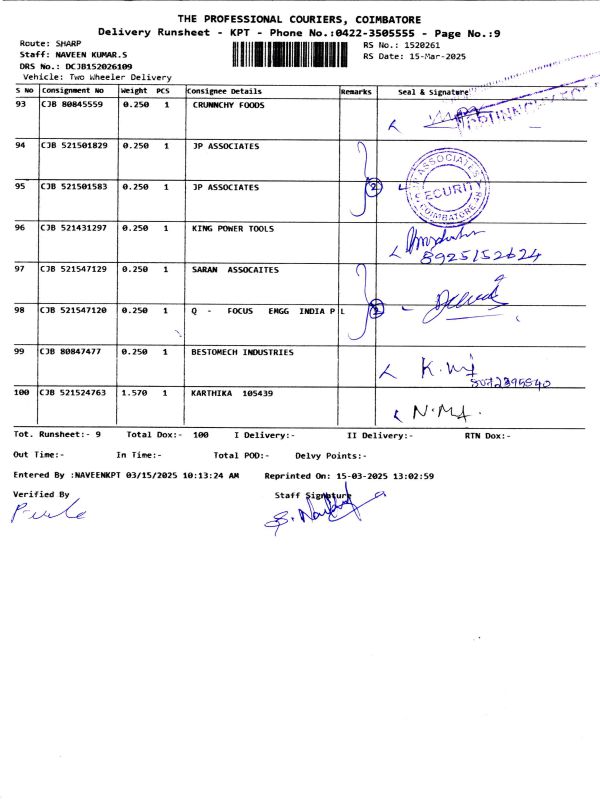 THE PROFESSIONAL COURIERS, COIMBATORE
Delivery Runsheet - KPT - Phone No.:0422-3505555 - Page No.:9
Route: SHARP
RS No.: 1520261
Staff: NAVEEN KUMAR.S
RS Date: 15-Mar-2025
DRS No.: DCJB152026109
Vehicle: Two Wheeler Delivery
S No Consignment No Weight PCS Consignee Details Remarks Seal & Signature
93 CJB 80845559 0.250 1 CRUNNCHY FOODS
94 CJB 521501829 0.250 1 JP ASSOCIATES
95 CJB 521501583 0.250 1 JP ASSOCIATES 2
JP ASSOCIATES
SECURITY
COIMBATORE
96 CJB 521431297 0.250 1 KING POWER TOOLS
8925152624
97 CJB 521547129 0.250 1 SARAN ASSOCAITES
98 CJB 521547120 0.250 1 Q - FOCUS EMGG INDIA P L 2
99 CJB 80847477 0.250 1 BESTOMECH INDUSTRIES
100 CJB 521524763 1.570 1 KARTHIKA 105439
Tot. Runsheet:- 9 Total Dox:- 100 I Delivery:- II Delivery:- RTN Dox:-
Out Time:- In Time:- Total POD:- Delvy Points:-
Entered By :NAVEENKPT 03/15/2025 10:13:24 AM Reprinted On: 15-03-2025 13:02:59
Verified By Staff Signature